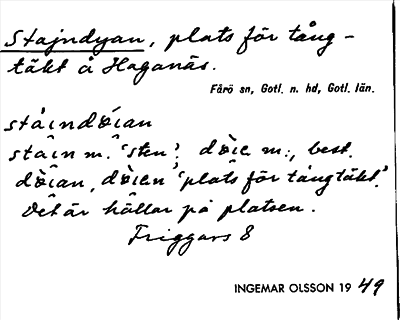 Stajndyan, plats för tång-
täkt å Haganäs.
Fårö sn, Gotl. n. hd, Gotl. län.
ståi̯ndȯ́i̯an
stai̯n m. 'sten'; dȯ̀i̯e m:, best.
dȯ̀i̯an, dȯ̀i̯en 'plats för tångtäkt'.
Det är hällar på platsen.
Friggars 8
INGEMAR OLSSON 1949